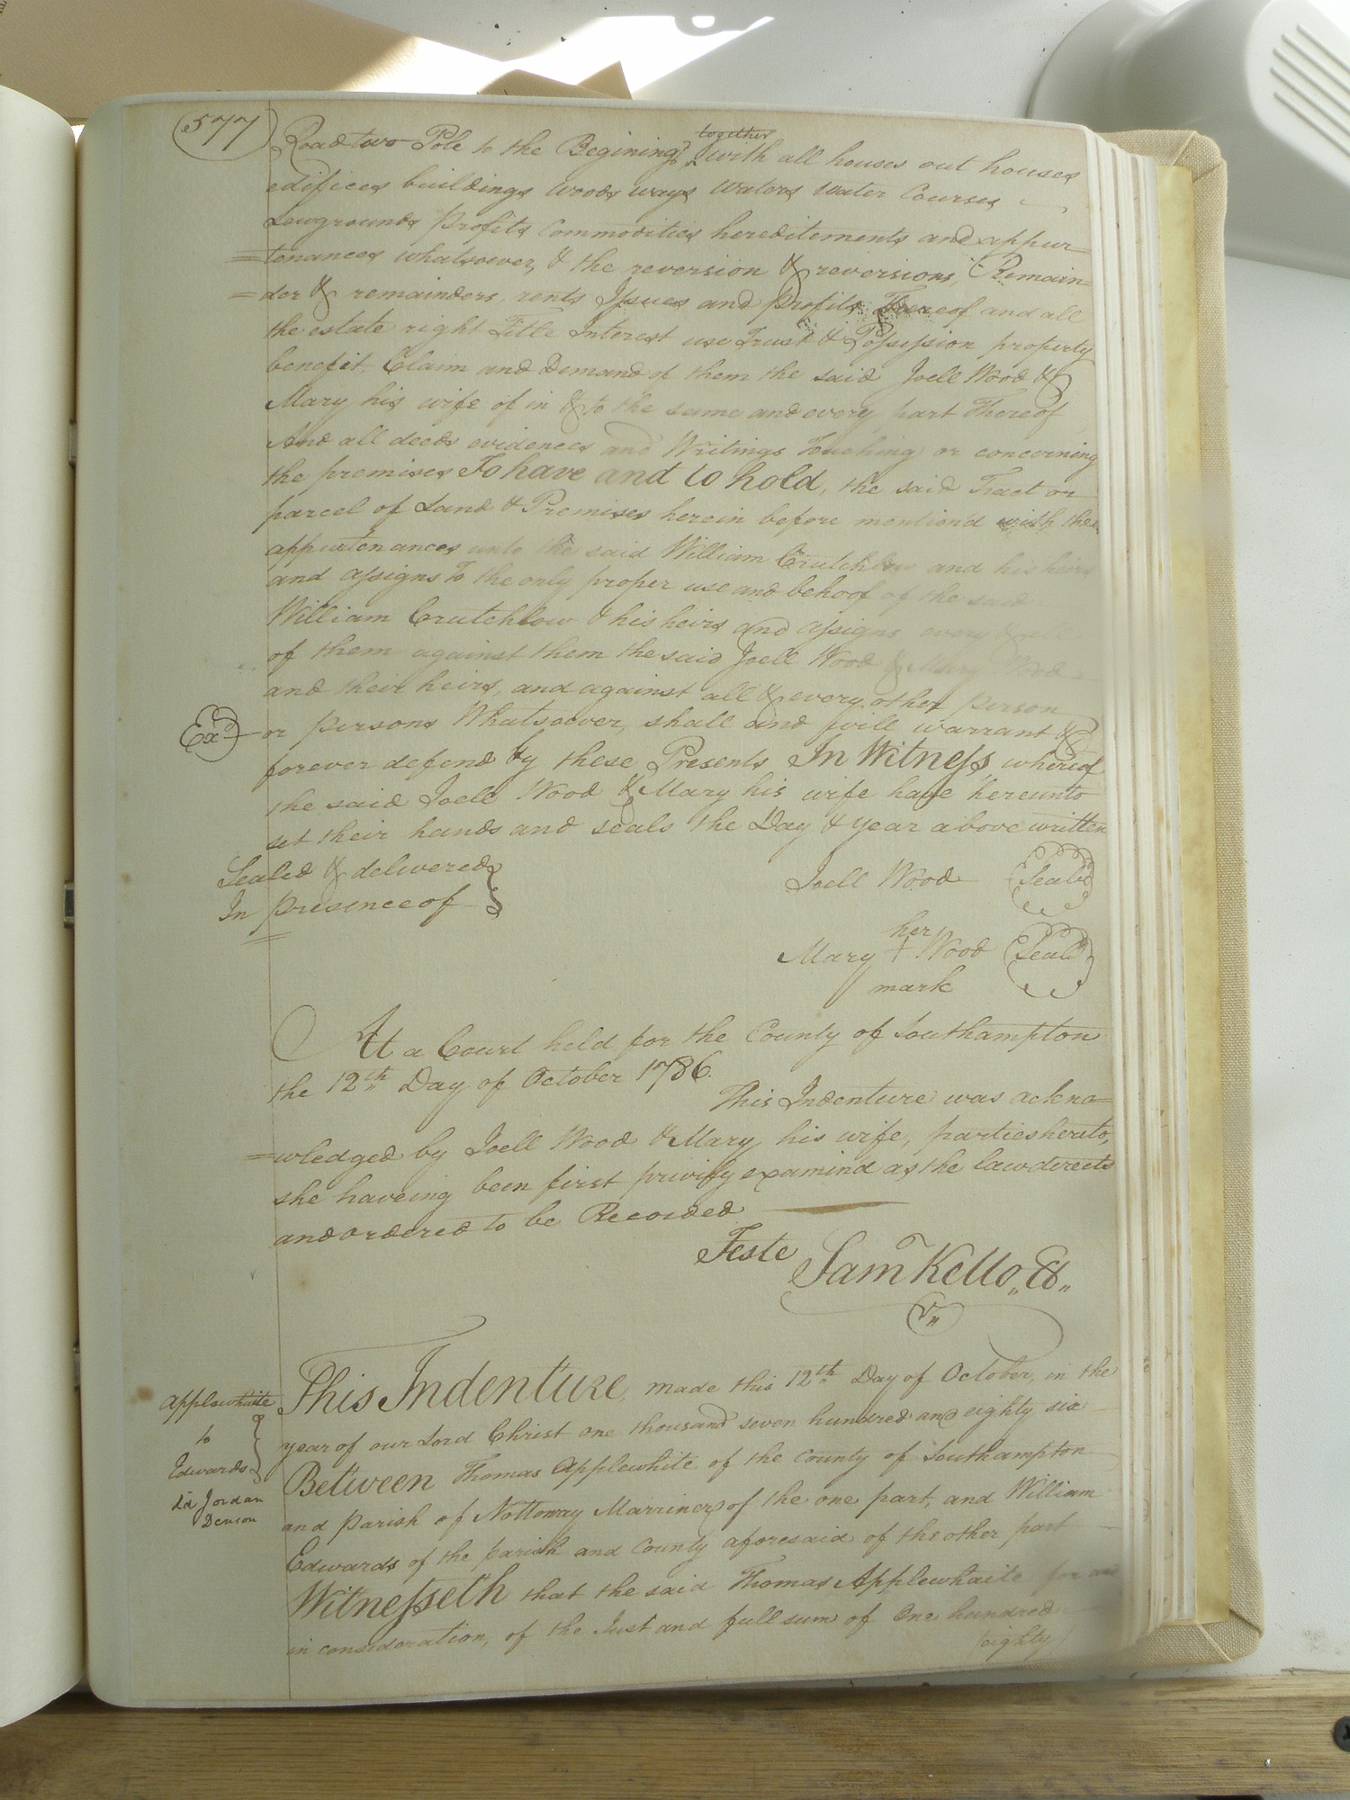 577
together
Road two Pole to the Begining, with all houses out houses
edifices buildings woods ways waters water Courses
Lowgrounds profits Commodities hereditements and appur-
=tenances whatsoever, & the reversion & reversions, Remain-
=der & remainders, rents Issues and profits Thereof and all
the estate right Title Interest use Trust & Possession property
benefit, Claim and Demand of them the said Joell Wood &
Mary his wife of in & to the same and every part Thereof
And all deeds evidences and Writings Touching or concerning
the premises To have and to hold, the said Tract or
parcel of Land & Premises herein before mention'd with the
appurtenances unto the said William Crutchlow and his heirs
and assigns To the only proper use and behoof of the said
William Crutchlow & his heirs and assigns every
of them against them the said Joell Wood & Mary Wood
and their heirs, and against all & every other person
Exd or persons Whatsoever, shall and will warrant &
forever defend by these Presents In Witness whereof
the said Joell Wood & Mary his wife have hereunto
set their hands and seals the Day & year above written
Sealed & delivered
In presence of
Joell Wood Seal
her
Mary + Wood Seal
mark
At a Court held for the County of Southampton
the 12th Day of October 1786.
This Indenture was ackno=
=wledged by Joell Wood & Mary his wife, parties hereto,
she haveing been first privily examind as the law directs
and ordered to be Recorded
Teste Sam Kello,
This Indenture, made this 12th Day of October, in the
year of our Lord Christ one thousand seven hundred and eighty six
Between Thomas Applewhite of the County of Southampton
and Parish of Nottoway Marriner of the one part, and William
Edwards of the parish and County aforesaid of the other part
Witnesseth that the said Thomas Applewhaite for and
in consideration, of the Just and full sum of One hundred
(eighty
Applewhaite
to
Edwards
Jordan
Denson